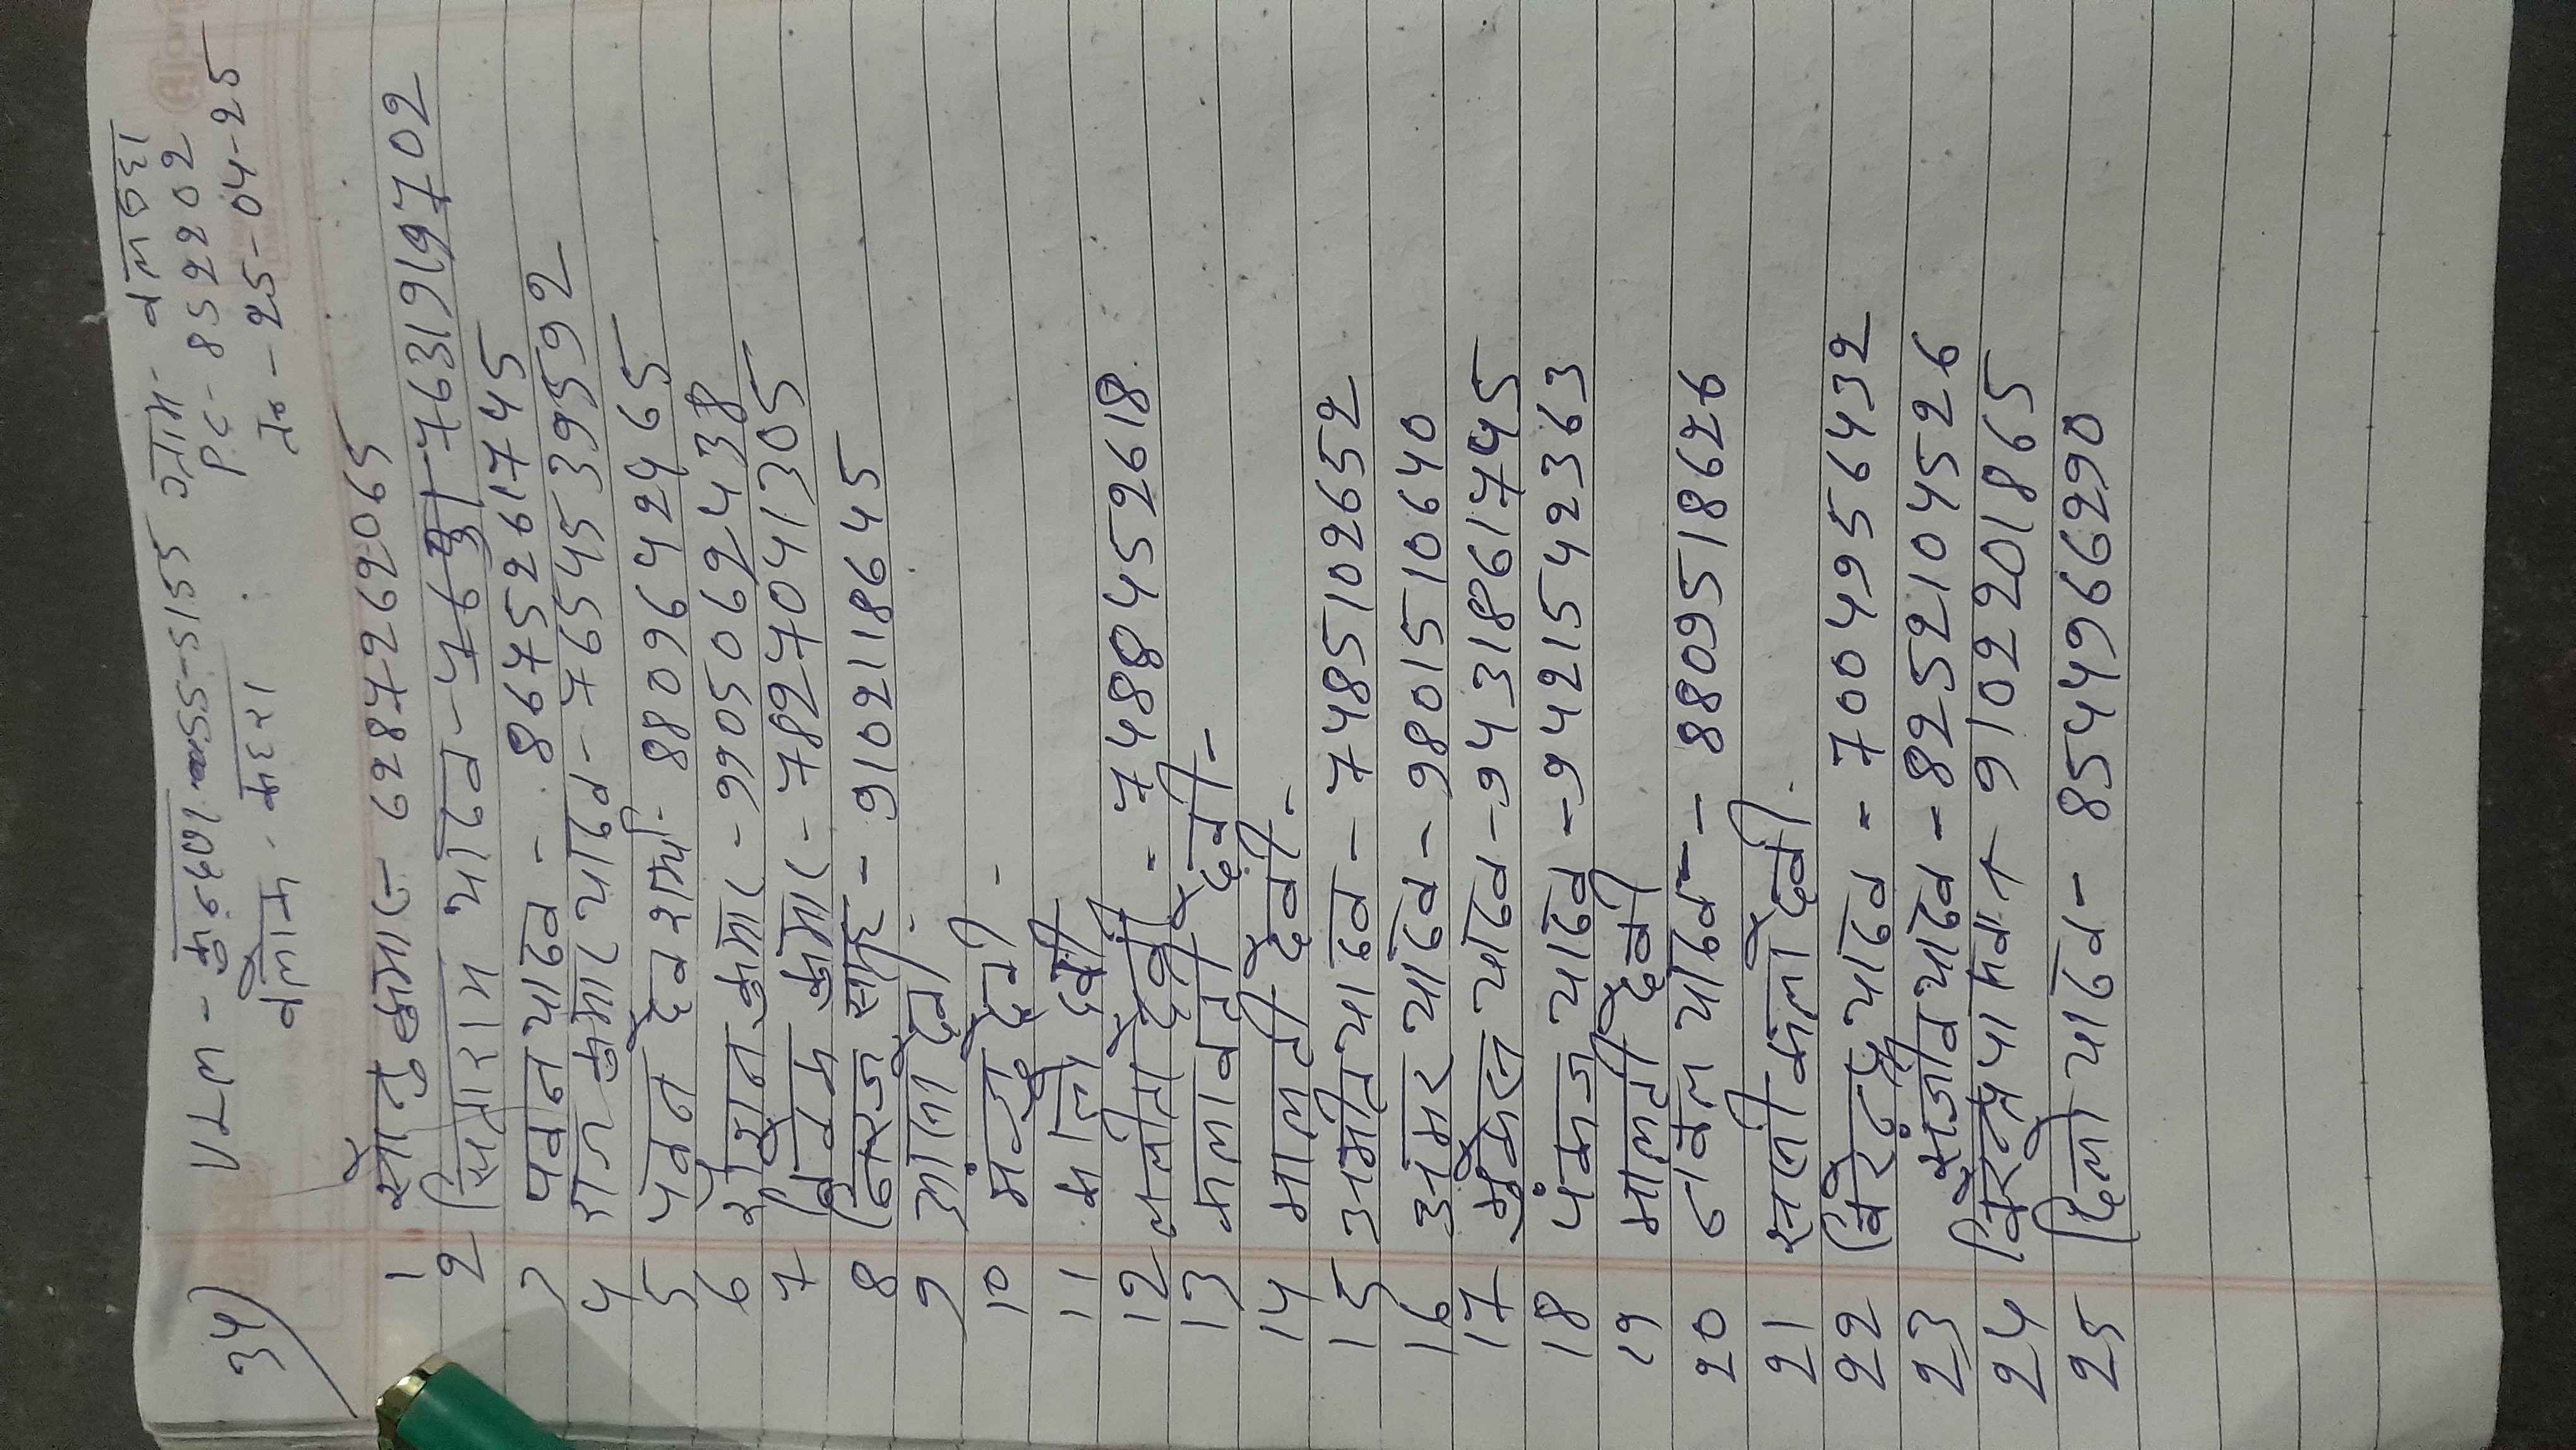 34)
VLM - कुन्दन 55-5155 ग्राम- बलठहा
ब्लाक - कहरा PC- 852202
दि० - 25-04-25
1 सोनु कुमार - 6287262065
2 सियाराम यादव - 7631919702
3 पवन यादव - 8675261745
4 राज कुमार यादव - 7654539592
5 पवन देव शर्मा - 8809642465
6 रोशन कुमार - 9905062438
7 विक्रम कुमार - 7827041305
8 निरज साह - 9102118645
9 आशा देवी
10 मंजू देवी -
11 देवी
12 ललीता देवी - 7488452618
13 कलावती देवी -
14 मालती देवी -
15 अमीत यादव - 7485102652
16 अमर यादव - 9801510640
17 मुकेश यादव - 9431861745
18 पंकज यादव - 9421542363
19 मालती देवी
20 नवल यादव - 8809518626
21 सती कला देवी
22 बिरेन्द्र यादव - 7004956432
23 संजीव यादव - 8252104526
24 9102201865
25 दिलो यादव - 8549666290